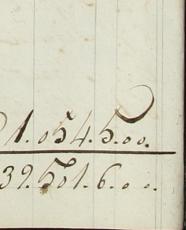 1.054.5.00.
39.501.6.0 0.